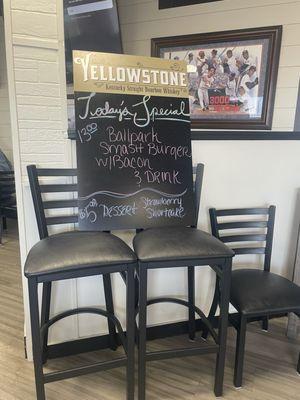 YELLOWSTONE
Kentucky Straight Bourbon Whiskey
Today's Special
13.00 Ballpark
Smash Burger
w/Bacon
& Drink
Dessert Strawberry
Shortcake
3000